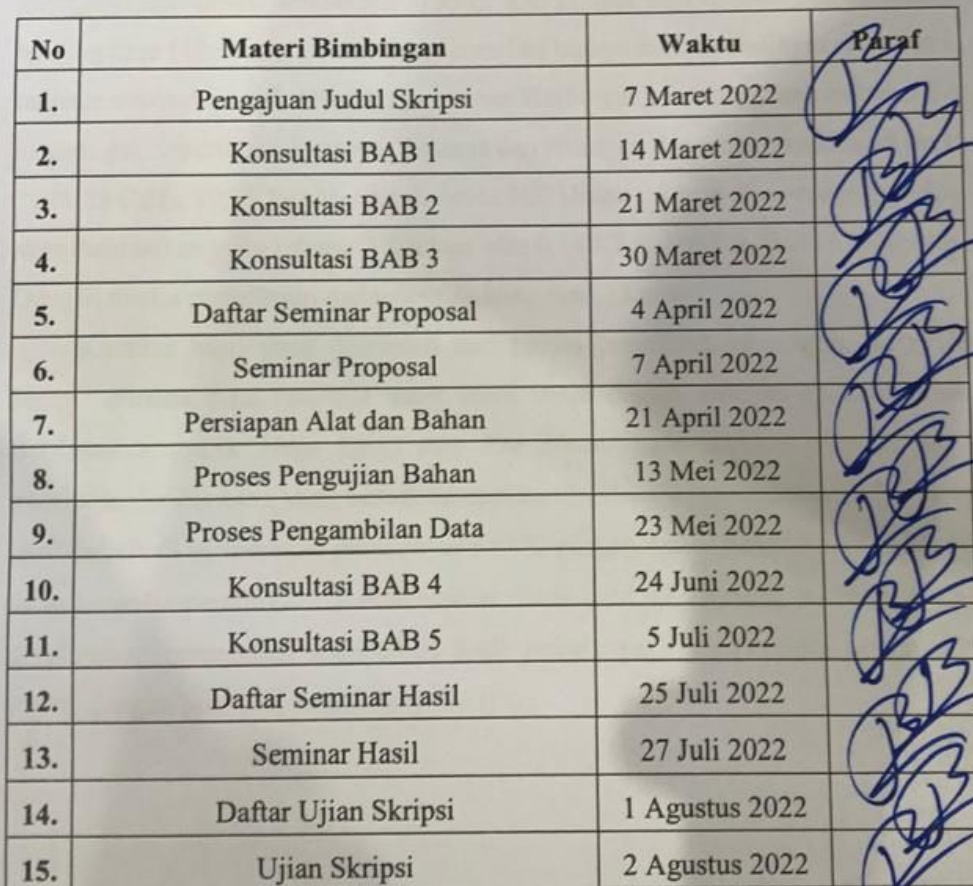 No Materi Bimbingan Waktu Paraf
1. Pengajuan Judul Skripsi 7 Maret 2022
2. Konsultasi BAB 1 14 Maret 2022
3. Konsultasi BAB 2 21 Maret 2022
4. Konsultasi BAB 3 30 Maret 2022
5. Daftar Seminar Proposal 4 April 2022
6. Seminar Proposal 7 April 2022
7. Persiapan Alat dan Bahan 21 April 2022
8. Proses Pengujian Bahan 13 Mei 2022
9. Proses Pengambilan Data 23 Mei 2022
10. Konsultasi BAB 4 24 Juni 2022
11. Konsultasi BAB 5 5 Juli 2022
12. Daftar Seminar Hasil 25 Juli 2022
13. Seminar Hasil 27 Juli 2022
14. Daftar Ujian Skripsi 1 Agustus 2022
15. Ujian Skripsi 2 Agustus 2022